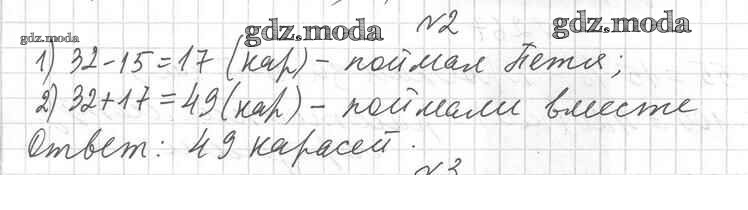 №2
gdz.moda gdz.moda gdz.moda
1) 32-15=17 (кар) - поймал Петя;
2) 32+17=49 (кар) - поймали вместе
Ответ: 49 карасей.
№3